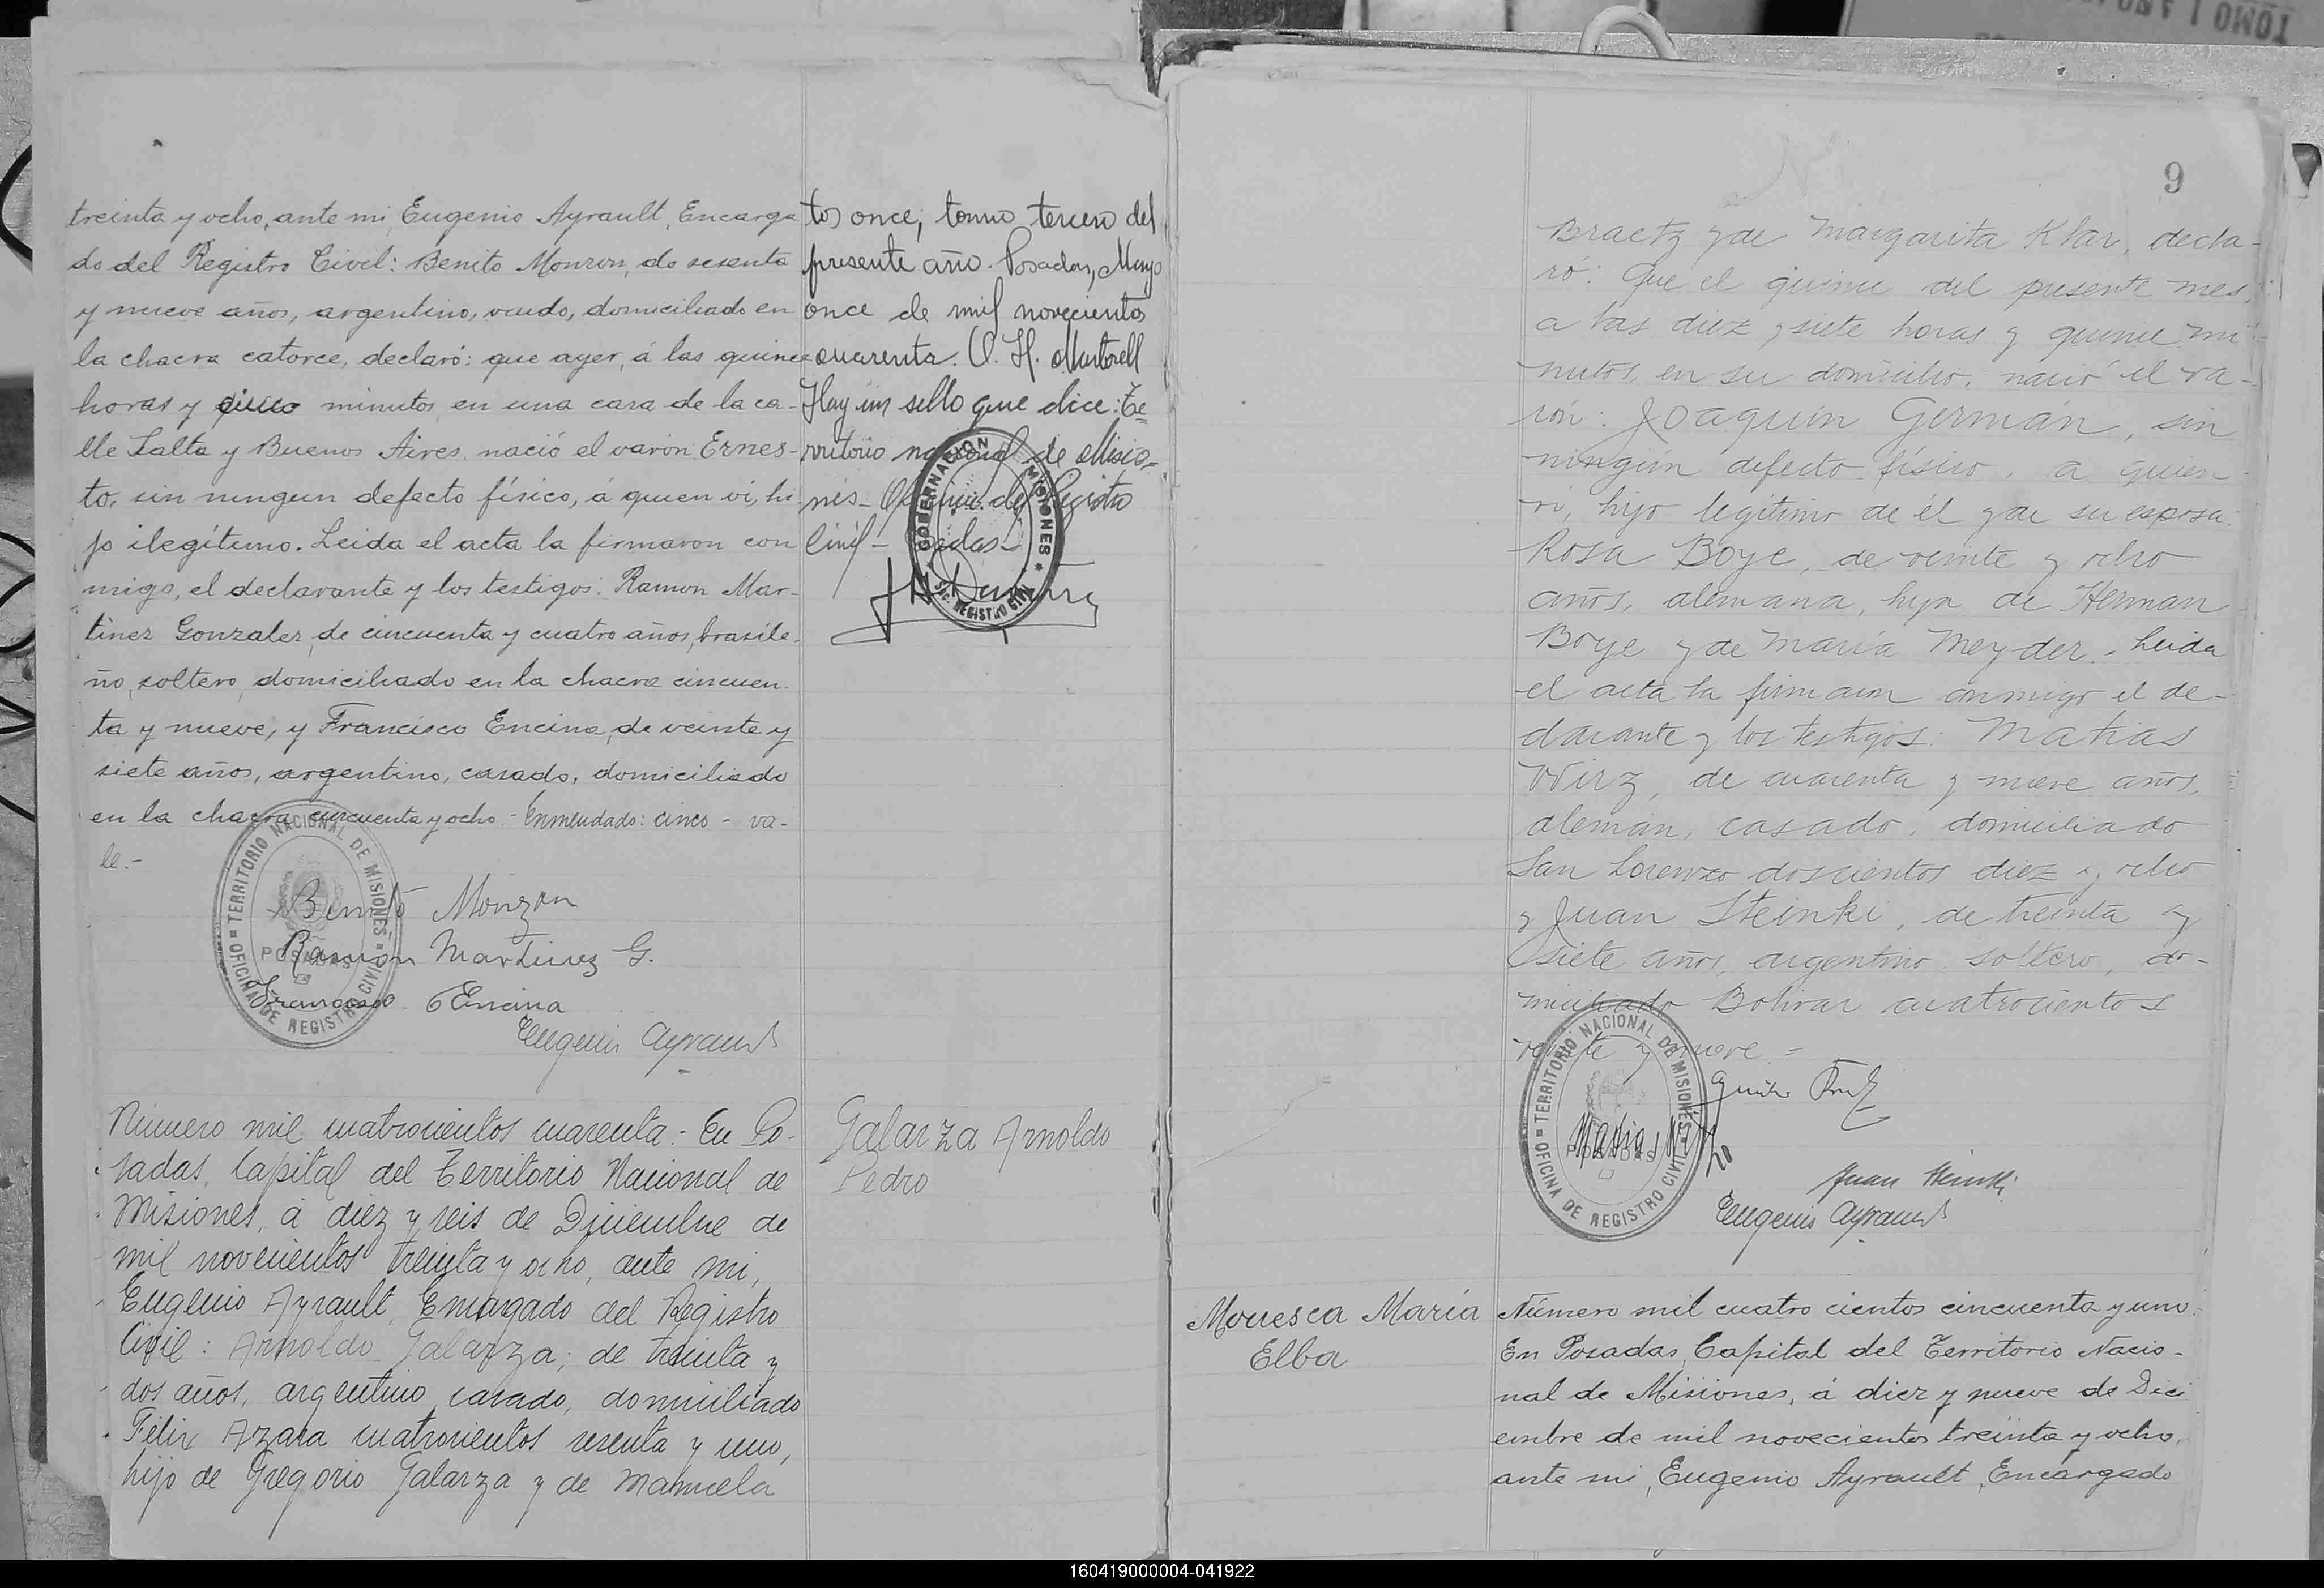 treinta y ocho, ante mi, Eugenio Ayrault, Encarga
do del Registro Civil: Benito Monzon, de sesenta
y nueve años, argentino, viudo, domiciliado en
la chacra catorce, declaró: que ayer, á las quince
horas y cinco minutos, en una casa de la ca-
lle Salta y Buenos Aires, nació el varón Ernes-
to, sin ningun defecto físico, á quien vi, hi-
jo ilegítimo. Leida el acta la firmaron con
migo, el declarante y los testigos: Ramon Mar-
tinez Gonzalez, de cincuenta y cuatro años, brasile-
ño, soltero, domiciliado en la chacra cincuen-
ta y nueve, y Francisco Encina, de veinte y
siete años, argentino, casado, domiciliado
en la chacra cincuenta y ocho - Enmendado: cinco - va-
le.-
OFICINA DE REGISTRO CIVIL = TERRITORIO NACIONAL DE MISIONES =
POSADAS
Benito Monzon
Ramón Martinez G.
Francisco Encina
Eugenio Ayrault
tos once, tomo tercero del
presente año. Posadas, Mayo
once de mil novecientos
cuarenta. O. H. Martorell
Hay un sello que dice: Te=
rritorio nacional de Misio=
nes - Oficina del Registro
Civil -
GOBERNACION MISIONES * SEC. REGISTRO CIVIL *
Número mil cuatrocientos cuarenta.- En Po-
sadas, Capital del Territorio Nacional de
Misiones, á diez y seis de Diciembre de
mil novecientos treinta y ocho, ante mi,
Eugenio Ayrault, Encargado del Registro
Civil: Arnoldo Galarza, de treinta y
dos años, argentino, casado, domiciliado
Félix Azara cuatrocientos sesenta y uno,
hijo de Gregorio Galarza y de Manuela
Galarza Arnoldo
Pedro
9
Braetz y de Margarita Klar, decla-
ró: Que el quince del presente mes,
a las diez y siete horas y quince mi-
nutos, en su domicilio, nació el va-
rón: Joaquin Germán, sin
ningún defecto físico, a quien
vi, hijo legítimo de él y de su esposa
Rosa Boye, de veinte y ocho
años, alemana, hija de Herman
Boye y de María Meyder. Leida
el acta la firmaron conmigo el de-
clarante y los testigos: Matias
Wirz, de cuarenta y nueve años,
alemán, casado, domiciliado
San Lorenzo doscientos diez y ocho
y Juan Steinki, de treinta y
siete años, argentino, soltero, do-
miciliado Bolivar cuatrocientos
veinte y nueve.=
OFICINA DE REGISTRO CIVIL = TERRITORIO NACIONAL DE MISIONES =
POSADAS
Matias Wirz
Juan Steinki
Eugenio Ayrault
Mouesca María
Elba
Número mil cuatro cientos cincuenta y uno.
En Posadas, Capital del Territorio Nacio-
nal de Misiones, á diez y nueve de Dici
embre de mil novecientos treinta y ocho,
ante mi, Eugenio Ayrault, Encargado
160419000004-041922